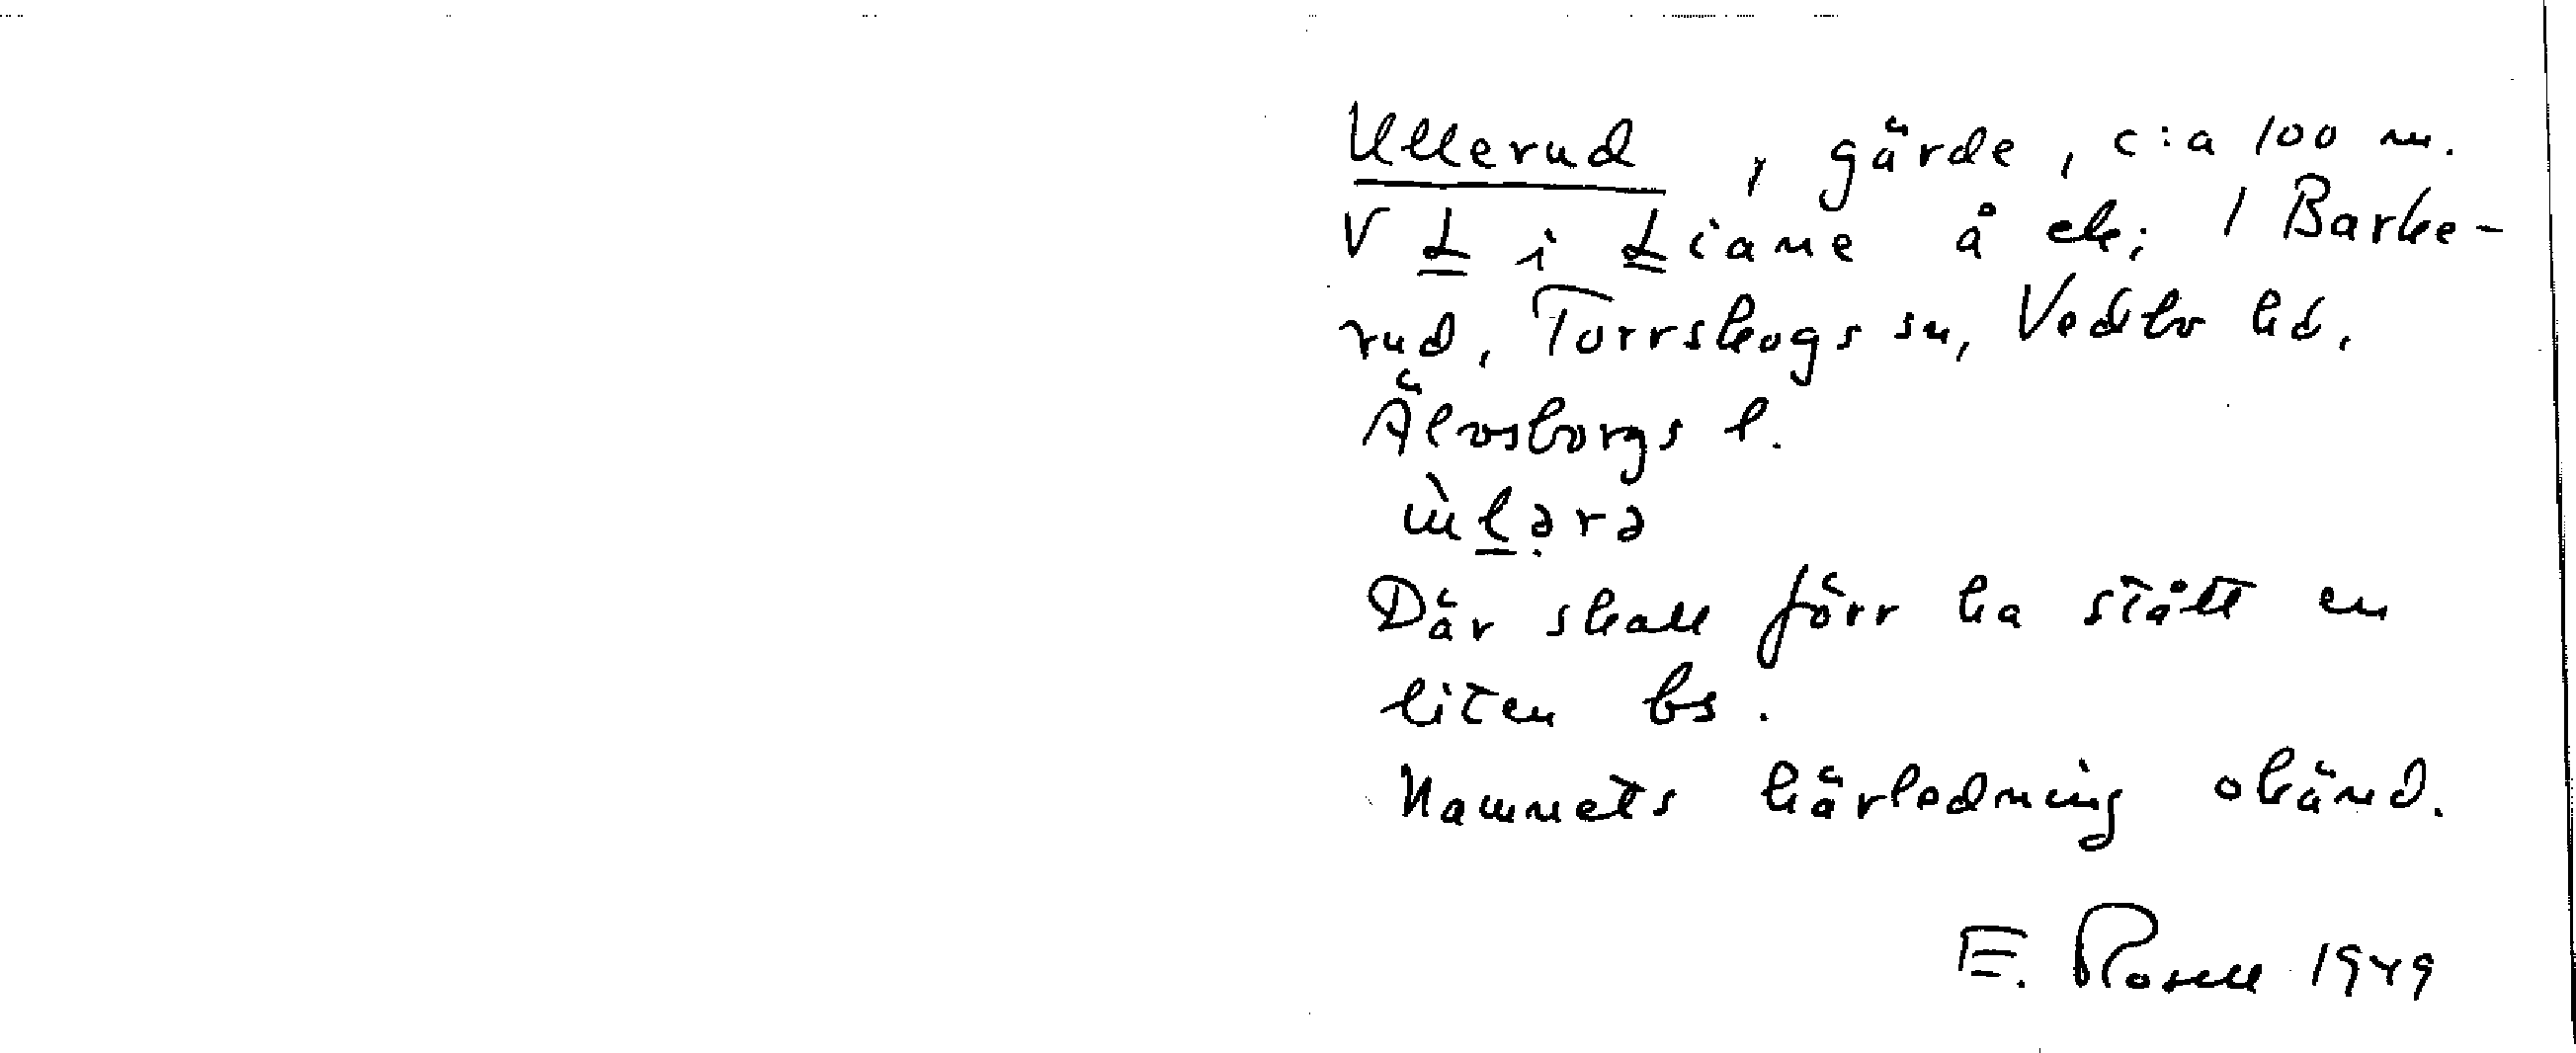 Ullerud, gärde, c:a 100 m.
V L i Liane å ek; 1 Barke-
rud, Torrskogs sn, Vedbo hd,
Älvsborgs l.
ùlərə
Där skall förr ha stått en
liten bs.
Namnets härledning okänd.
E. Rosell 1949